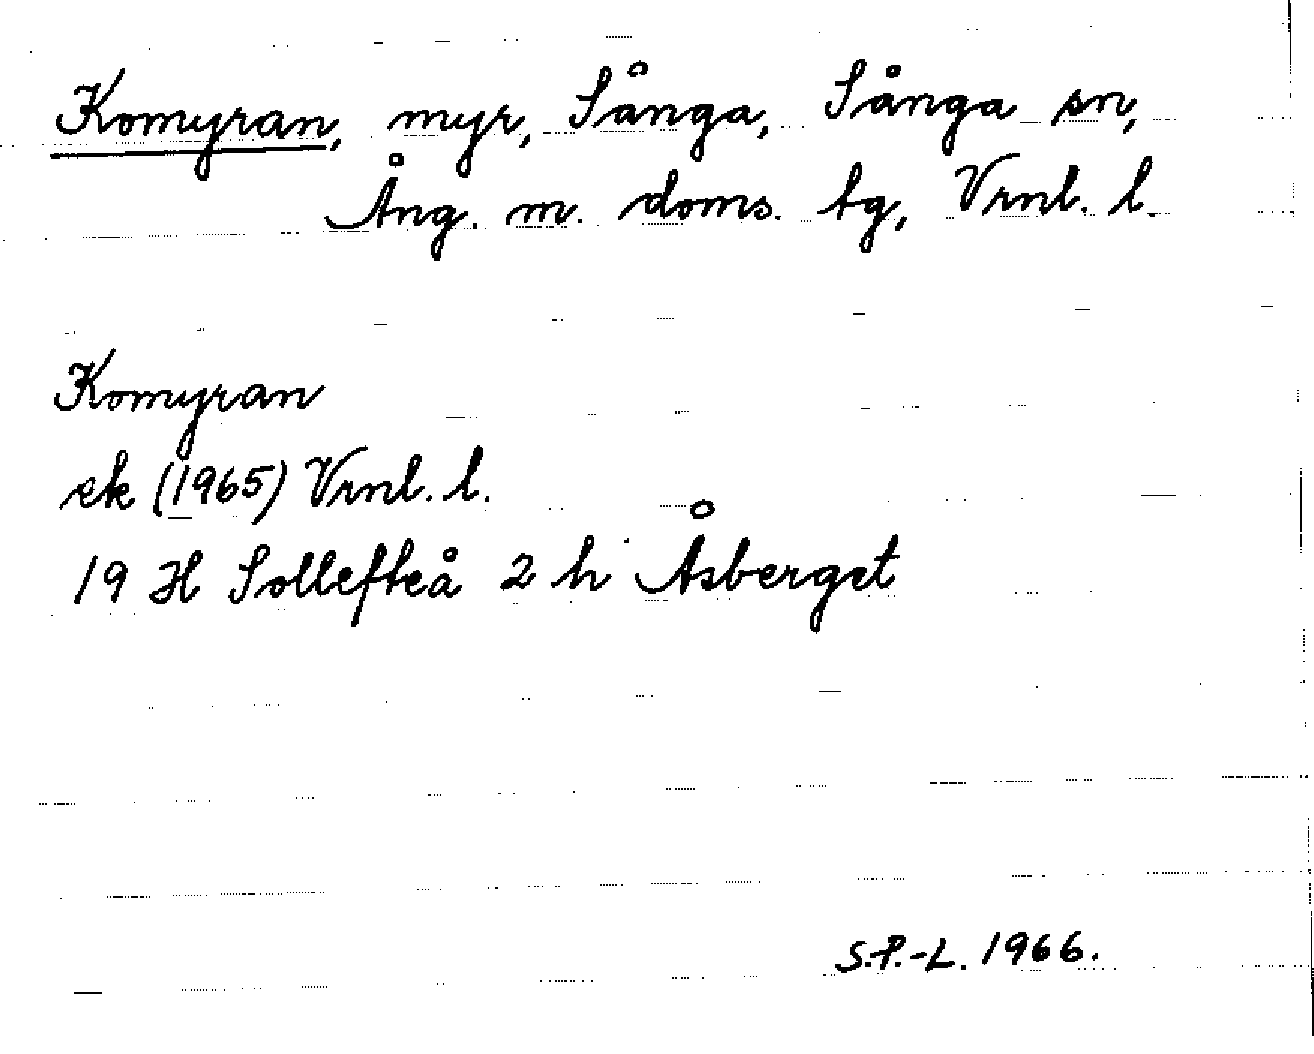 Komyran, myr, Sånga, Sånga sn,
Ång. m. doms. tg, Vrnl. l.
Komyran
ek (1965) Vrnl. l.
19 H Sollefteå 2 h Åsberget
S.P.-L. 1966.